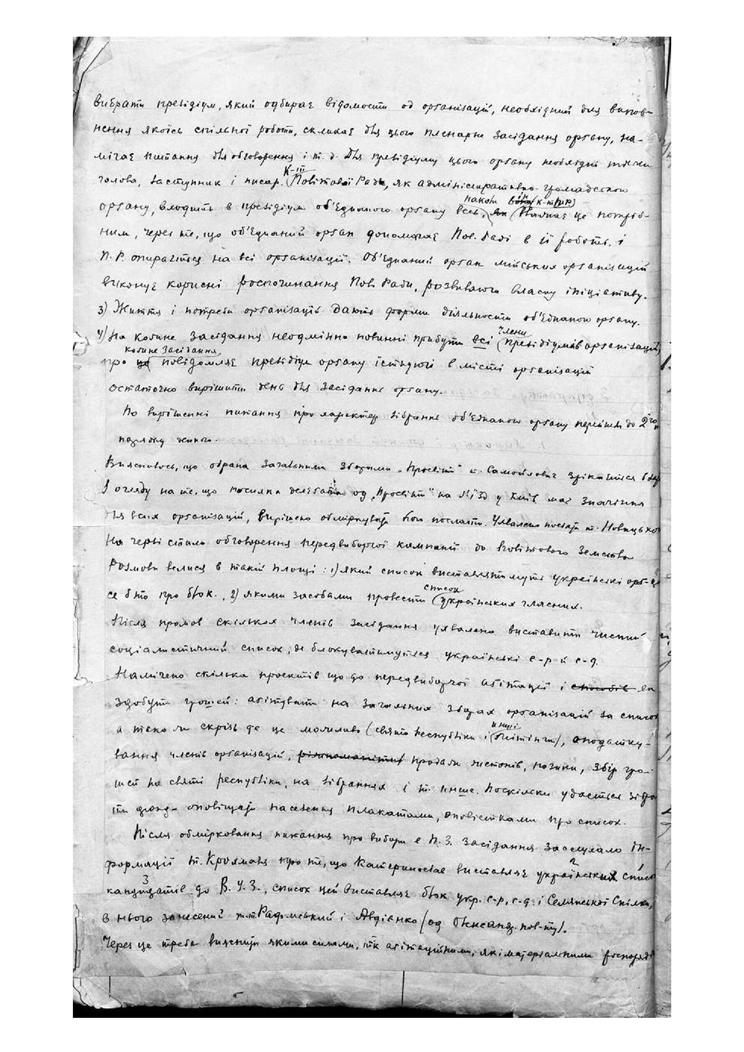 вибрати президіум, який одбирає відомости од організацій, необхідний для випов-
нення якоїсь спільної роботи, скликає для цього пленарне засідання органу, на-
мічає питання для обговорення і т. д. Для президіуму цього органу необхідні тільки
голова, заступник і писар. К-ііі Повітової Ради, як адміністративно-громадського
органу, входить в президіум об'єднаного органу весь, накол вважає це потріб-
ним, через те, що об'єднаний орган допомагає Пов. Раді в її роботі. і
П.Р. опирається на всі організації. Об'єднаний орган міських організацій
виконує корисні розпочинання Пов. Ради, розвиваючи власну ініціативу.
3) Життя і потреби організацій дають форми діяльности об'єднаного органу.
4) На кожне засідання неодмінно повинні прибути всі члени президіумів організацій,
про кожне засідання повідомляє президіум органу існуючі в місті організації
остаточно вирішити день для засідання органу.
По вирішенні питання про характер зібрання об'єднаного органу перейшли до 2го
порядку денного.
Вияснилось, що обрана загальними зборами „Просвіти" т. Самойлович
З огляду на те, що посилка делегата од „Просвіти" на з'їзд у Київ має значіння
для всіх організацій, вирішено обміркувати кого послати. Ухвалено послати т. Новицького
На черзі стало обговорення передвиборчої кампанії до Повітового Земства
Розмова велися в такій площі: 1) який список виставлятимуть українські орг-ції
се б то про блок, 2) якими засобами провести список українських гласних.
Після промов скількох членів засідання ухвалено виставити чистий
соціалістичний список, де блокуватимуться українські с-р й с-д.
Намічено скілька проектів що до передвиборчої агітації і способів
здобути грошей: агітувати на загальних зборах організацій за список
а також скрізь де це можливо (свято республіки і инші мітінги), оподатку-
вання членів організацій, різноманітні продажі листовів, позики, збір гро-
шей на святі республіки, на зібраннях і т. инше. Поскільки удасться зібра
ти фонд оповіщати населення плакатами, оповістками про список.
Після обміркування питання про вибори в П.З. засідання заслухало ін-
формації т. Крохмаля про те, що Катеринослав виставляє український 2 список
кандидатів 3 до В.У.З., список цей виставляє блок укр. с-р, с-д. і Селянської Спілки,
в нього занесені т.т. Радомський і Авдієнко (од Олександ. пов-ту).
Через це треба вияснити якими силами, як агітаційними, як і матеріальними розпоряд